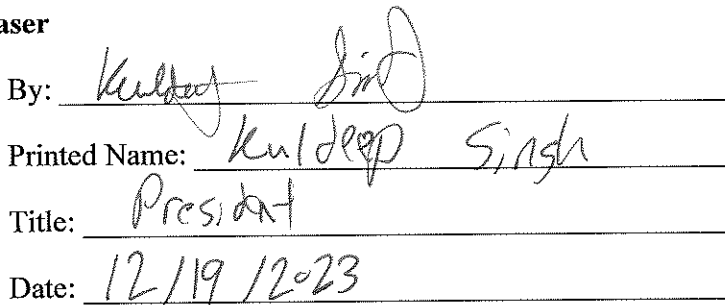 aser
By: Kuldeep Singh
Printed Name: Kuldeep Singh
Title: President
Date: 12/19/2023